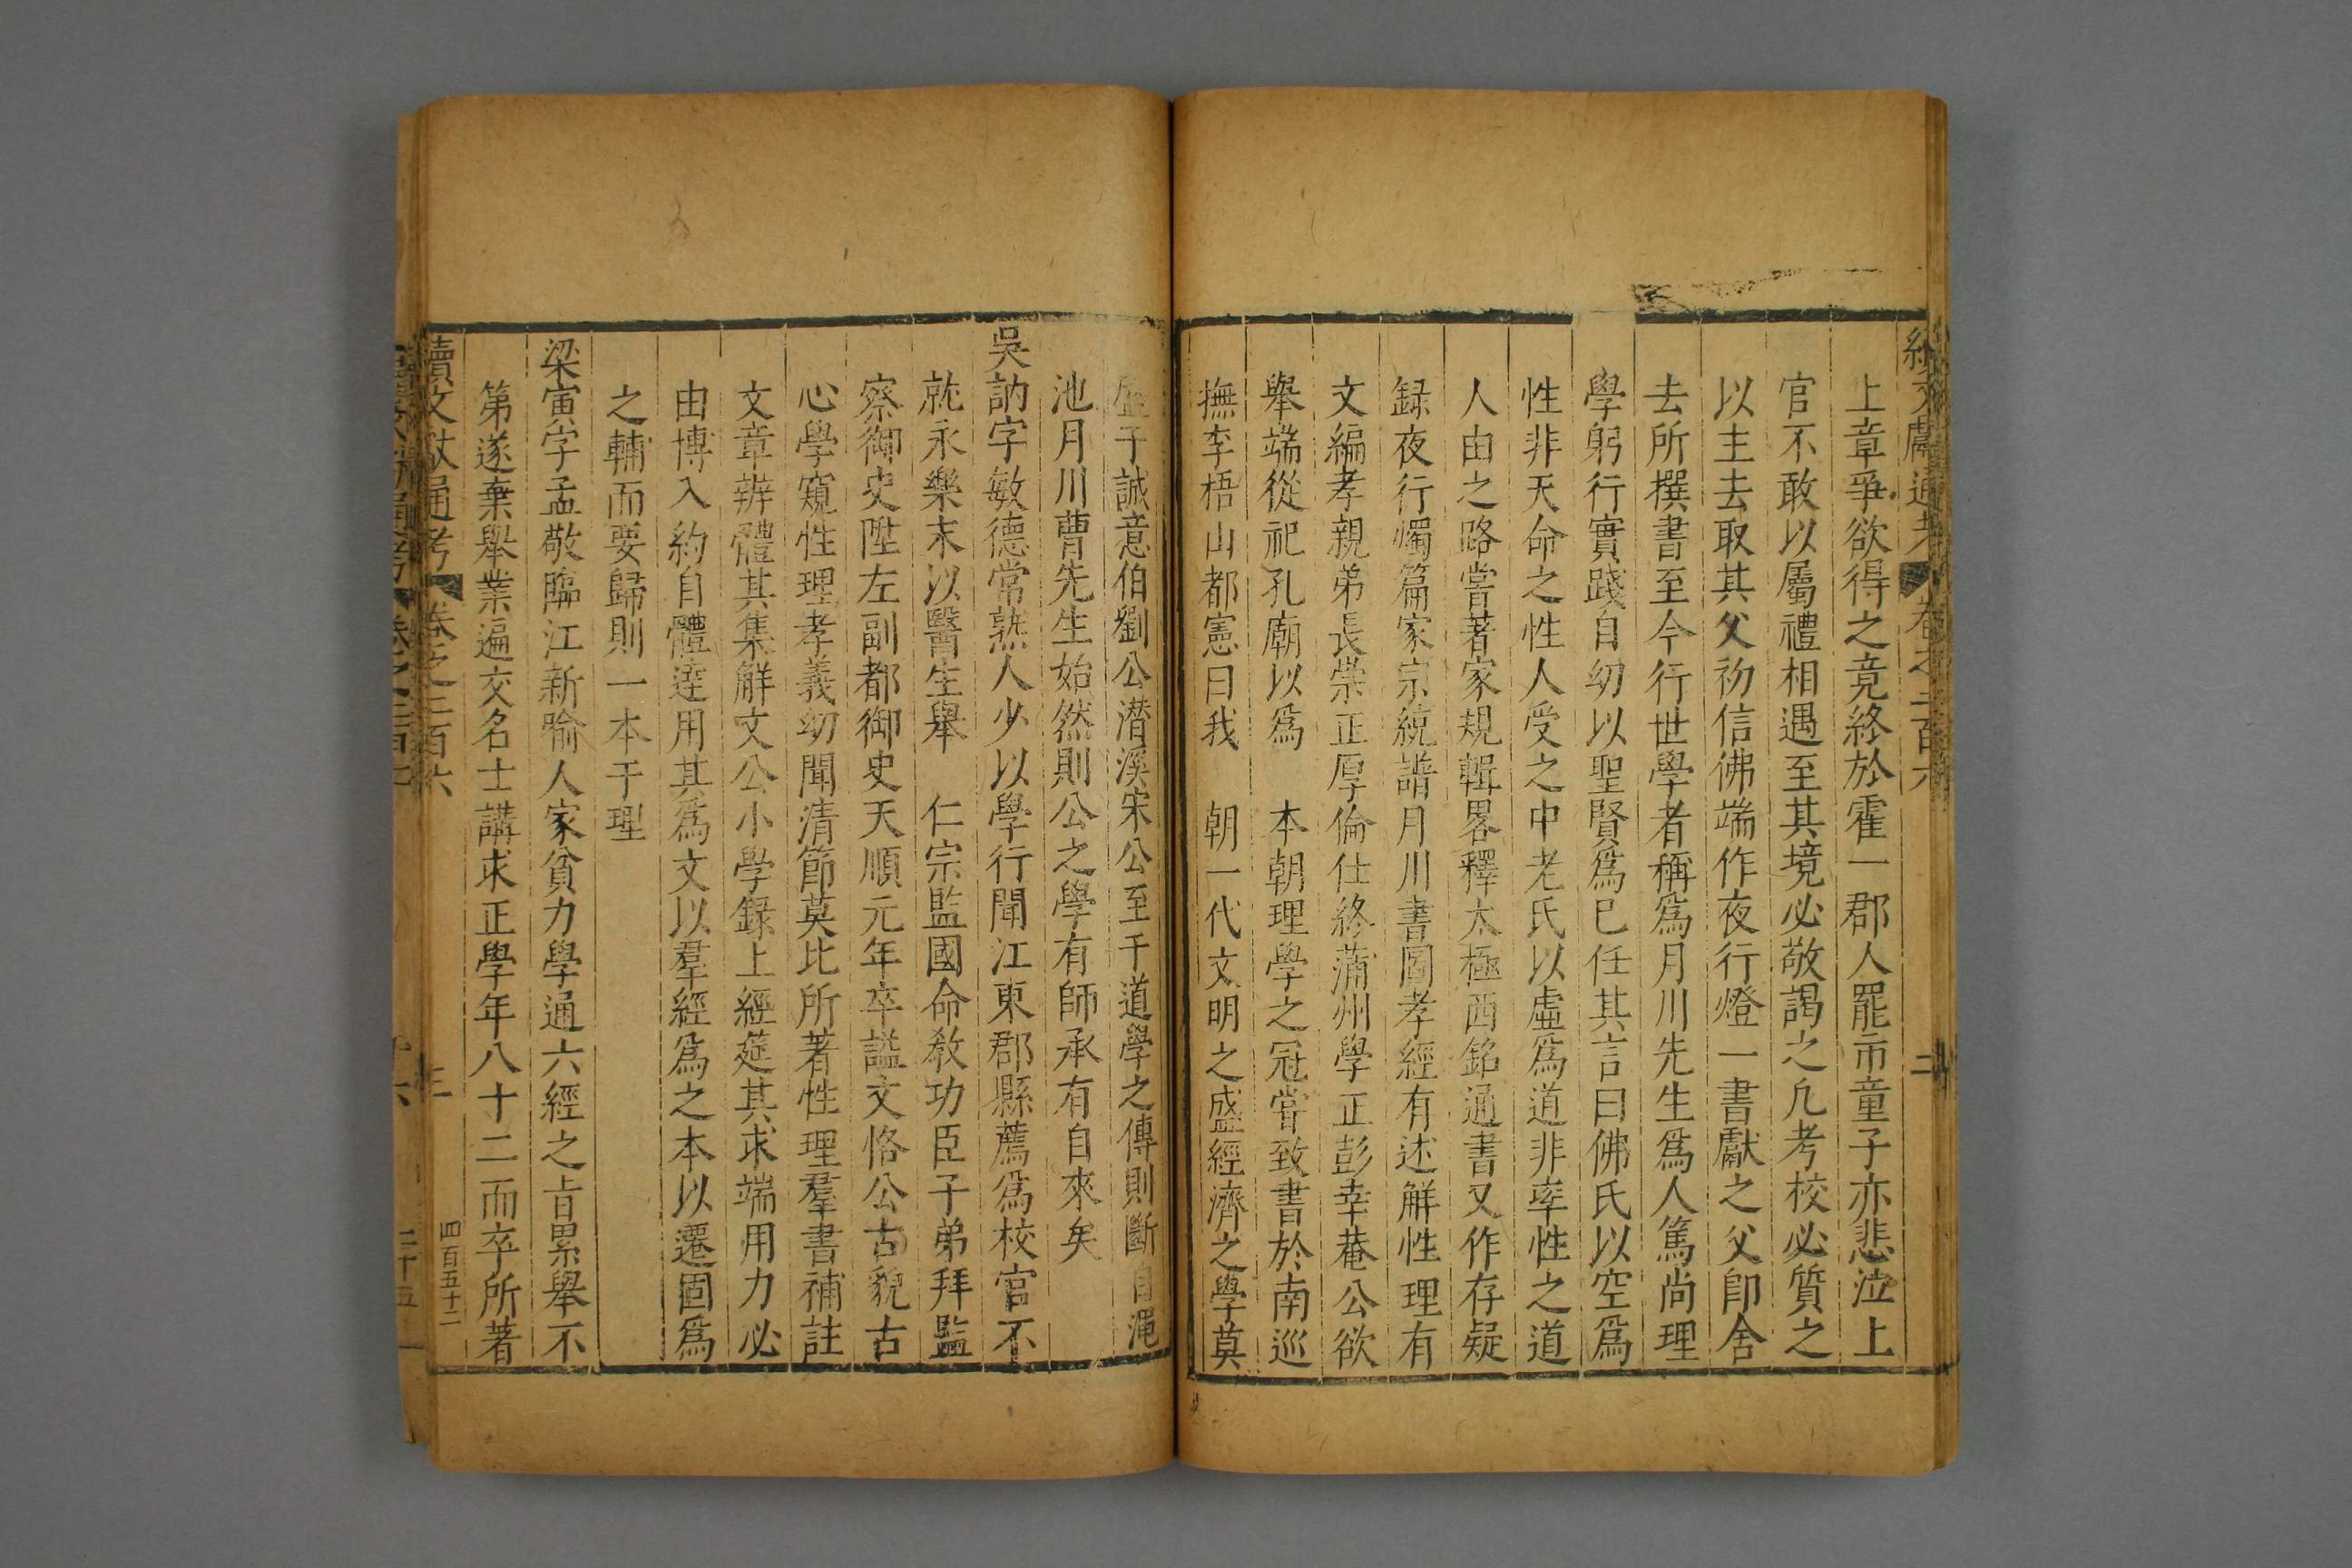 續文獻通考 卷之二百六 二
上章爭欲得之竟終於霍一郡人罷市童子亦悲泣上
官不敢以屬禮相遇至其境必敬謁之凢考校必質之
以主去取其父初信佛端作夜行燈一書獻之父卽舍
去所撰書至今行世學者稱爲月川先生爲人篤尚理
學躬行實踐自幼以聖賢爲已任其言曰佛氏以空爲
性非天命之性人受之中老氏以虛爲道非率性之道
人由之路嘗著家規輯畧釋太極西銘通書又作存疑
録夜行燭篇家宗統譜月川書圖孝經有述解性理有
文編孝親弟長崇正厚倫仕終蒲州學正彭幸菴公欲
舉端從祀孔廟以爲 本朝理學之冠嘗致書於南巡
撫李梧山都憲曰我 朝一代文明之盛經濟之學莫
盛于誠意伯劉公潛溪宋公至于道學之傳則斷自澠
池月川曹先生始然則公之學有師承有自來矣
吳訥字敏德常熟人少以學行聞江東郡縣薦爲校官不
就永樂末以醫生舉 仁宗監國命教功臣子弟拜監
察御史陞左副都御史天順元年卒謚文恪公古貌古
心學窺性理孝義幼聞清節莫比所著性理羣書補註
文章辨體其集解文公小學録上經筵其求端用力必
由博入約自體達用其爲文以羣經爲之本以遷固爲
之輔而要歸則一本于理
梁寅字孟敬臨江新喻人家貧力學通六經之旨累舉不
第遂棄舉業遍交名士講求正學年八十二而卒所著
續文獻通考 卷之二百六 三 四百五十二